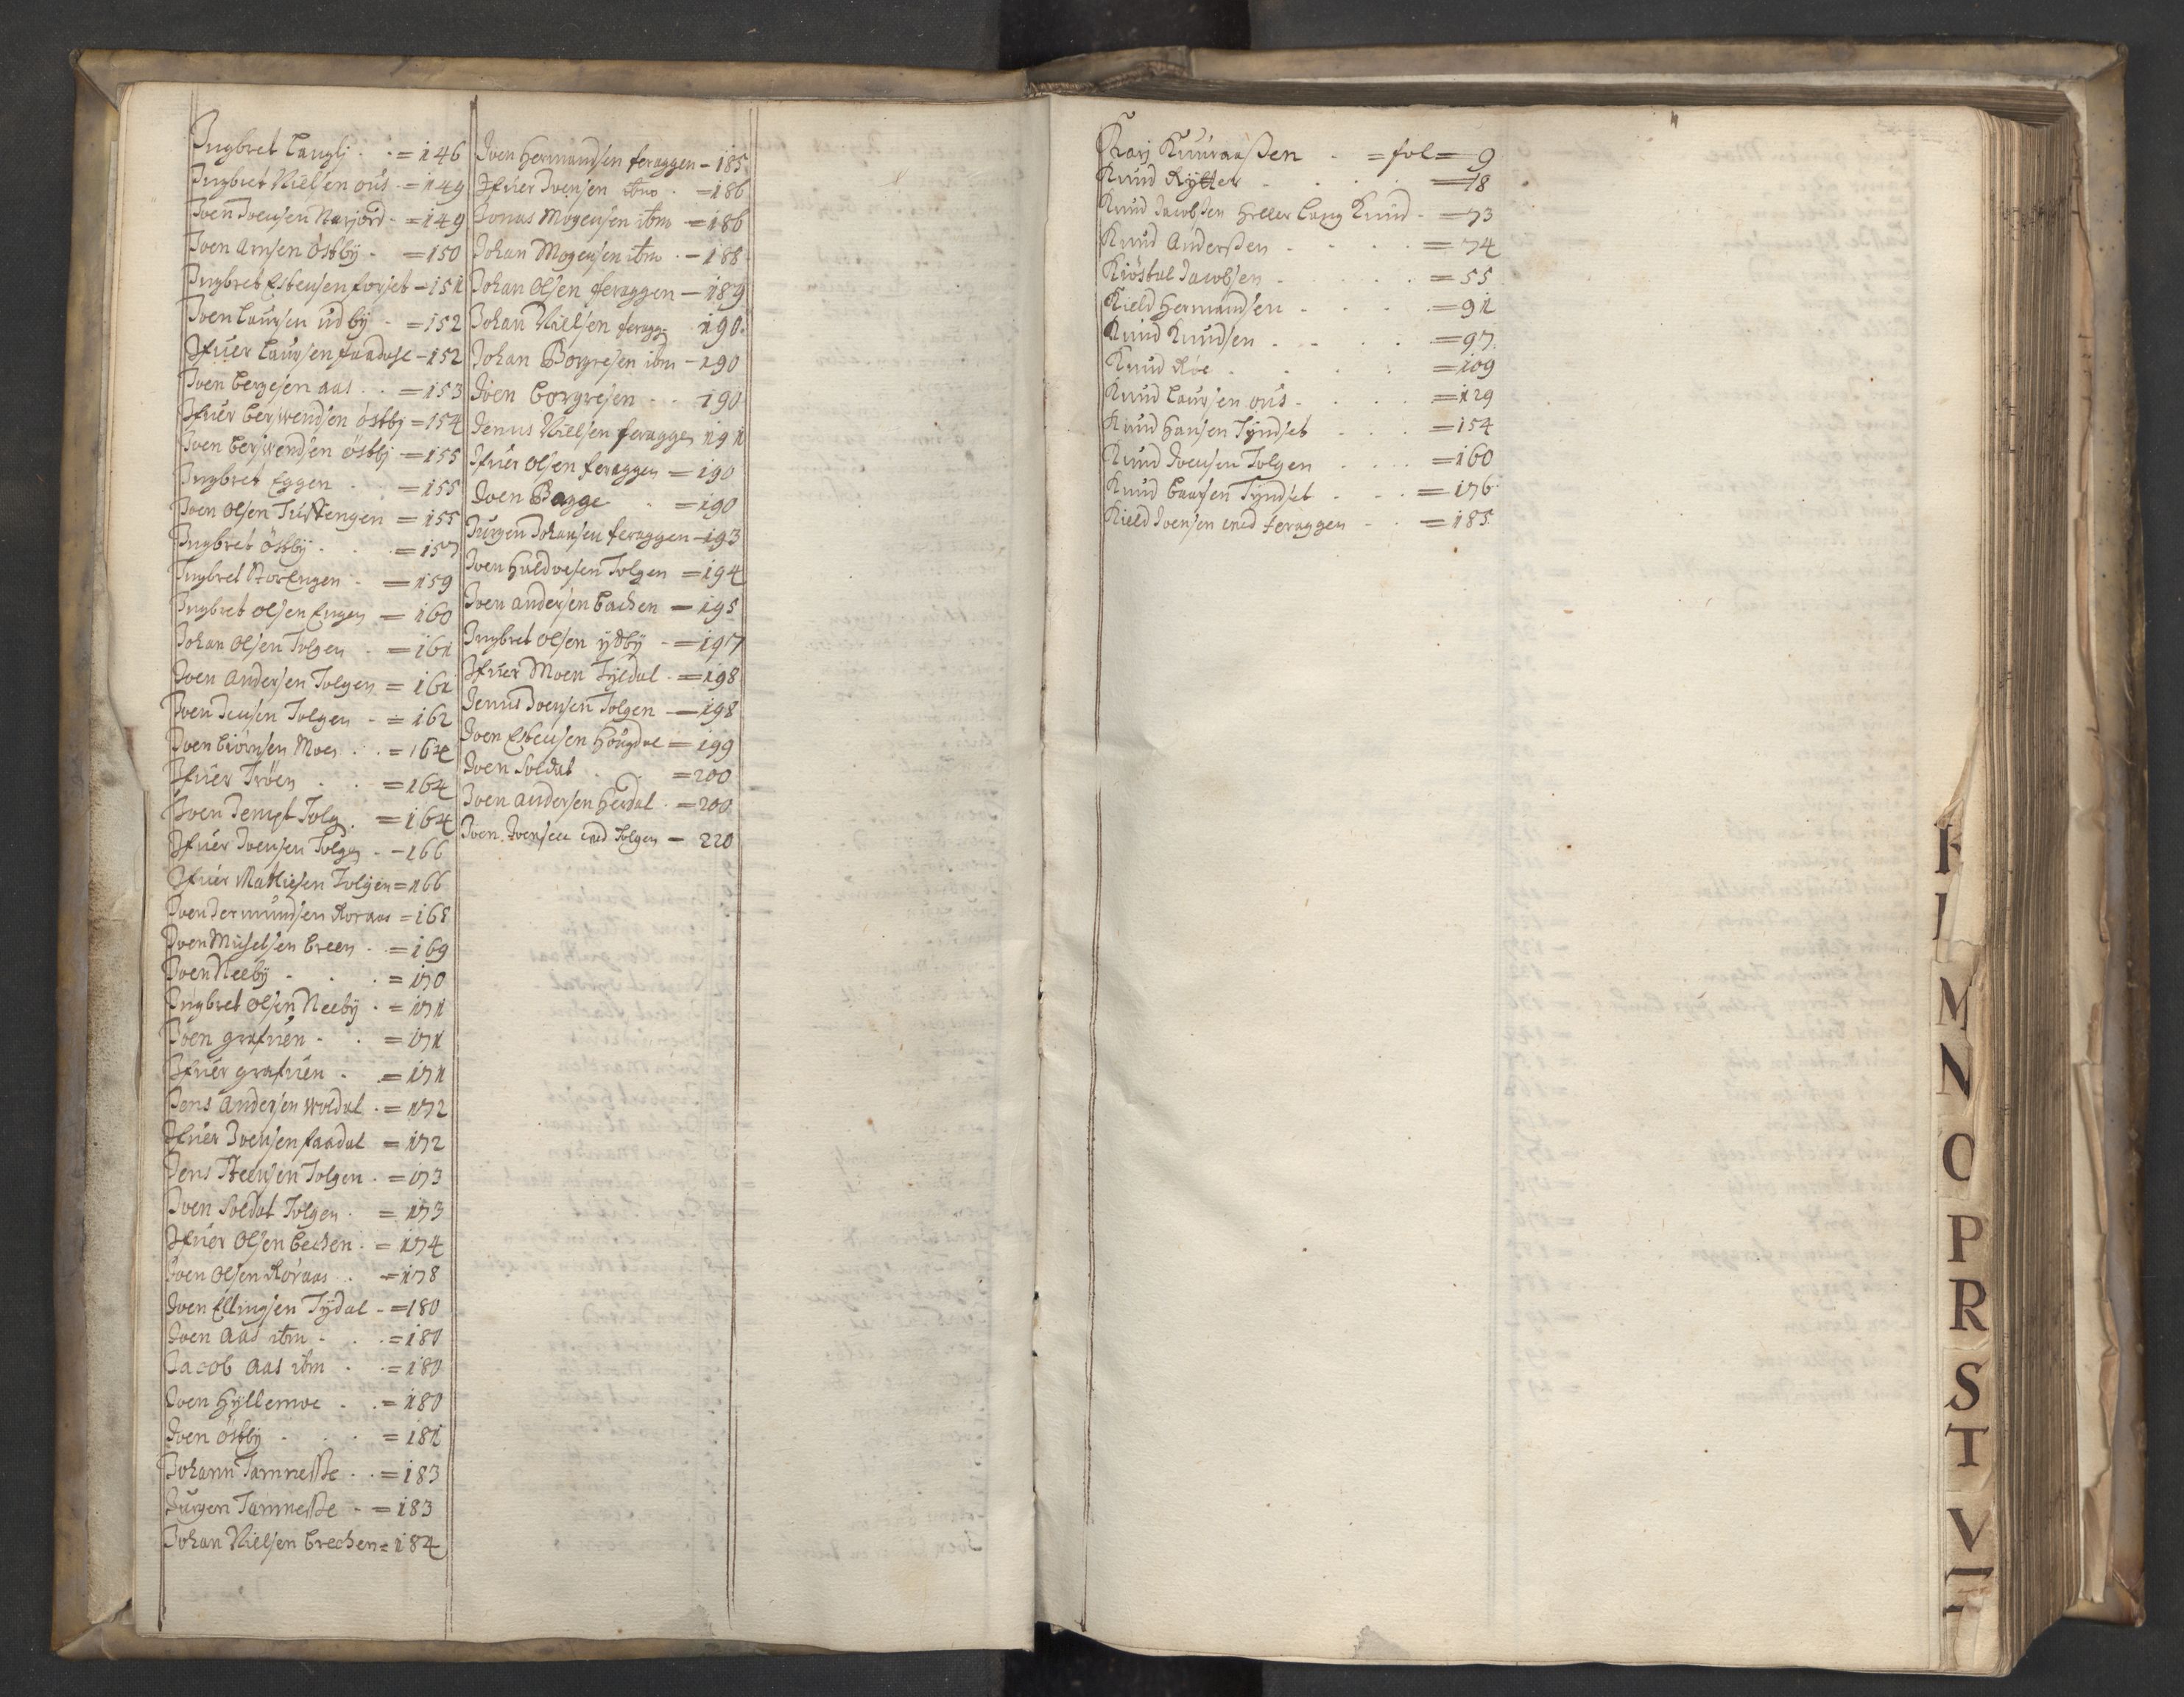 Ingbret Langlj . . = 146
Ingbret Nielsen ous - = 149
Joen Joensen Narjord - = 149
Joen Arnsen östbÿ - = 150
Ingbret Estensen forset - 151
Joen Laursen udbÿ - = 152
Ifuer Laursen faadase - 152
Joen Bergesen aas . . = 153
Ifuer Berswendsen östbÿ = 154
Joen Berswendsen östbj = 155
Ingbret Eggen . . = 155
Joen Olsen Tuftengen = 155
Ingbret östbÿ . . = 157
Ingbret StorEngen - = 159
Ingbret Olsen Engen = 160
Johan Olsen Tolgen - = 161
Joen Andersen Tolgen = 161
Joen Jensen Tolgen - = 162
Joen Biörnsen Moen . . = 164
Ifuer Tröen . . = 164
Joen Tempt Tolg . = 164
Ifuer Joensen Tolgen - - 166
Ifuer Mathiesen Tolgen = 166
Joen Jermundsen Roraas = 168
Joen Miselsen Breen . = 169
Joen Neebÿ - . . = 170
Ingbret Olsen Neebÿ . = 171
Joen grafuen - . = 171
Ifuer grafuen . = 171
Jens Andersen Woldal . = 172
Ifuer Joensen faadal = 172
Jens Steensen Tolgen . = 173
Joen Soldat Tolgen . = 173
Ifuer Olsen Bechen . = 174
Joen Olsen Röraas . = 178
Joen Ellingsen Tÿdal - = 180
Joen Aas ibm - . . = 180
Jacob Aas ibm . . = 180
Joen Hÿllemoe . . = 180
Joen östbÿ - . . = 181
Johann Tamnesse . . = 183
Jurgen Tamnesse - = 183
Johan Nielsen Brechen = 184
Joen Hermandsen feraggen - 185
Ifuer Joensen ibm . = 186
Jonas Mogensen ibm = 186
Johan Mogensen ibm . - 188
Johan Olsen feraggen - 189
Johan Nielsen feragg= 190
Johan Borgresen ibm - 190
Joen Borgresen - . 190
Jenus Nielsen feraggen 191
Ifuer Olsen feraggen = 190
Joen Bagge . = 190
Jurgen Johansen feraggen - 193
Joen Haldoesen Tolgen = 194
Joen Andersen Bachen = 195
Ingbret Olsen ÿdbÿ - = 197
Ifuer Moen Tÿdal . = 198
Jenus Joensen Tolgen - 198
Joen Estensen Hougdal = 199
Joen Soldat . . = 200
Joen Andersen Herdal . = 200
Joen Joensen ved Tolgen - 220
Karj Kuuraassen . = fol = 9
Knud Rÿtter - . . . = 18
Knud Jacobsen heller Lang Knud - = 73
Knud Anderssen - . . . = 74
Kiöstal Jacobsen - . . . = 55
Kield Hermandsen . . . = 91
Knud Knudsen . - . . = 97
Knud Röe - . . . = 109
Knud Laursen ous - . . . = 129
Knud Hansen Tÿndset . . = 154
Knud Joensen Tolgen . . . = 160
Knud Laarsen Tÿndset - - . = 176
Kield Joensen ved feraggen - . = 185
K
L
M
N
O
P
R
S
T
V